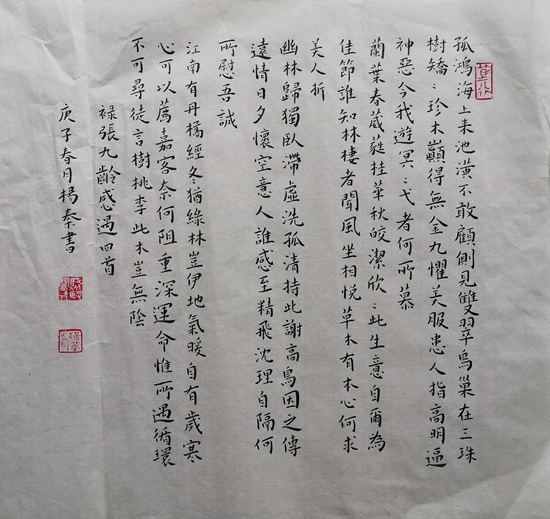 孤鴻海上来池潢不敢顧側見雙翠鳥巢在三珠
樹矯〻珍木巔得無金丸懼美服患人指高明逼
神惡今我遊冥〻弋者何所慕
蘭葉春葳蕤桂華秋皎潔欣〻此生意自爾為
佳節誰知林棲者聞風坐相悅草木有本心何求
美人折
幽林歸獨臥滯虛洗孤清持此謝高鳥因之傳
遠情日夕懷空意人誰感至精飛沈理自隔何
所慰吾誠
江南有丹橘經冬猶綠林豈伊地氣暖自有歲寒
心可以薦嘉客奈何阻重深運命惟所遇循環
不可尋徒言樹桃李此木豈無陰
禄張九齡感遇四首
庚子春月楊秦書